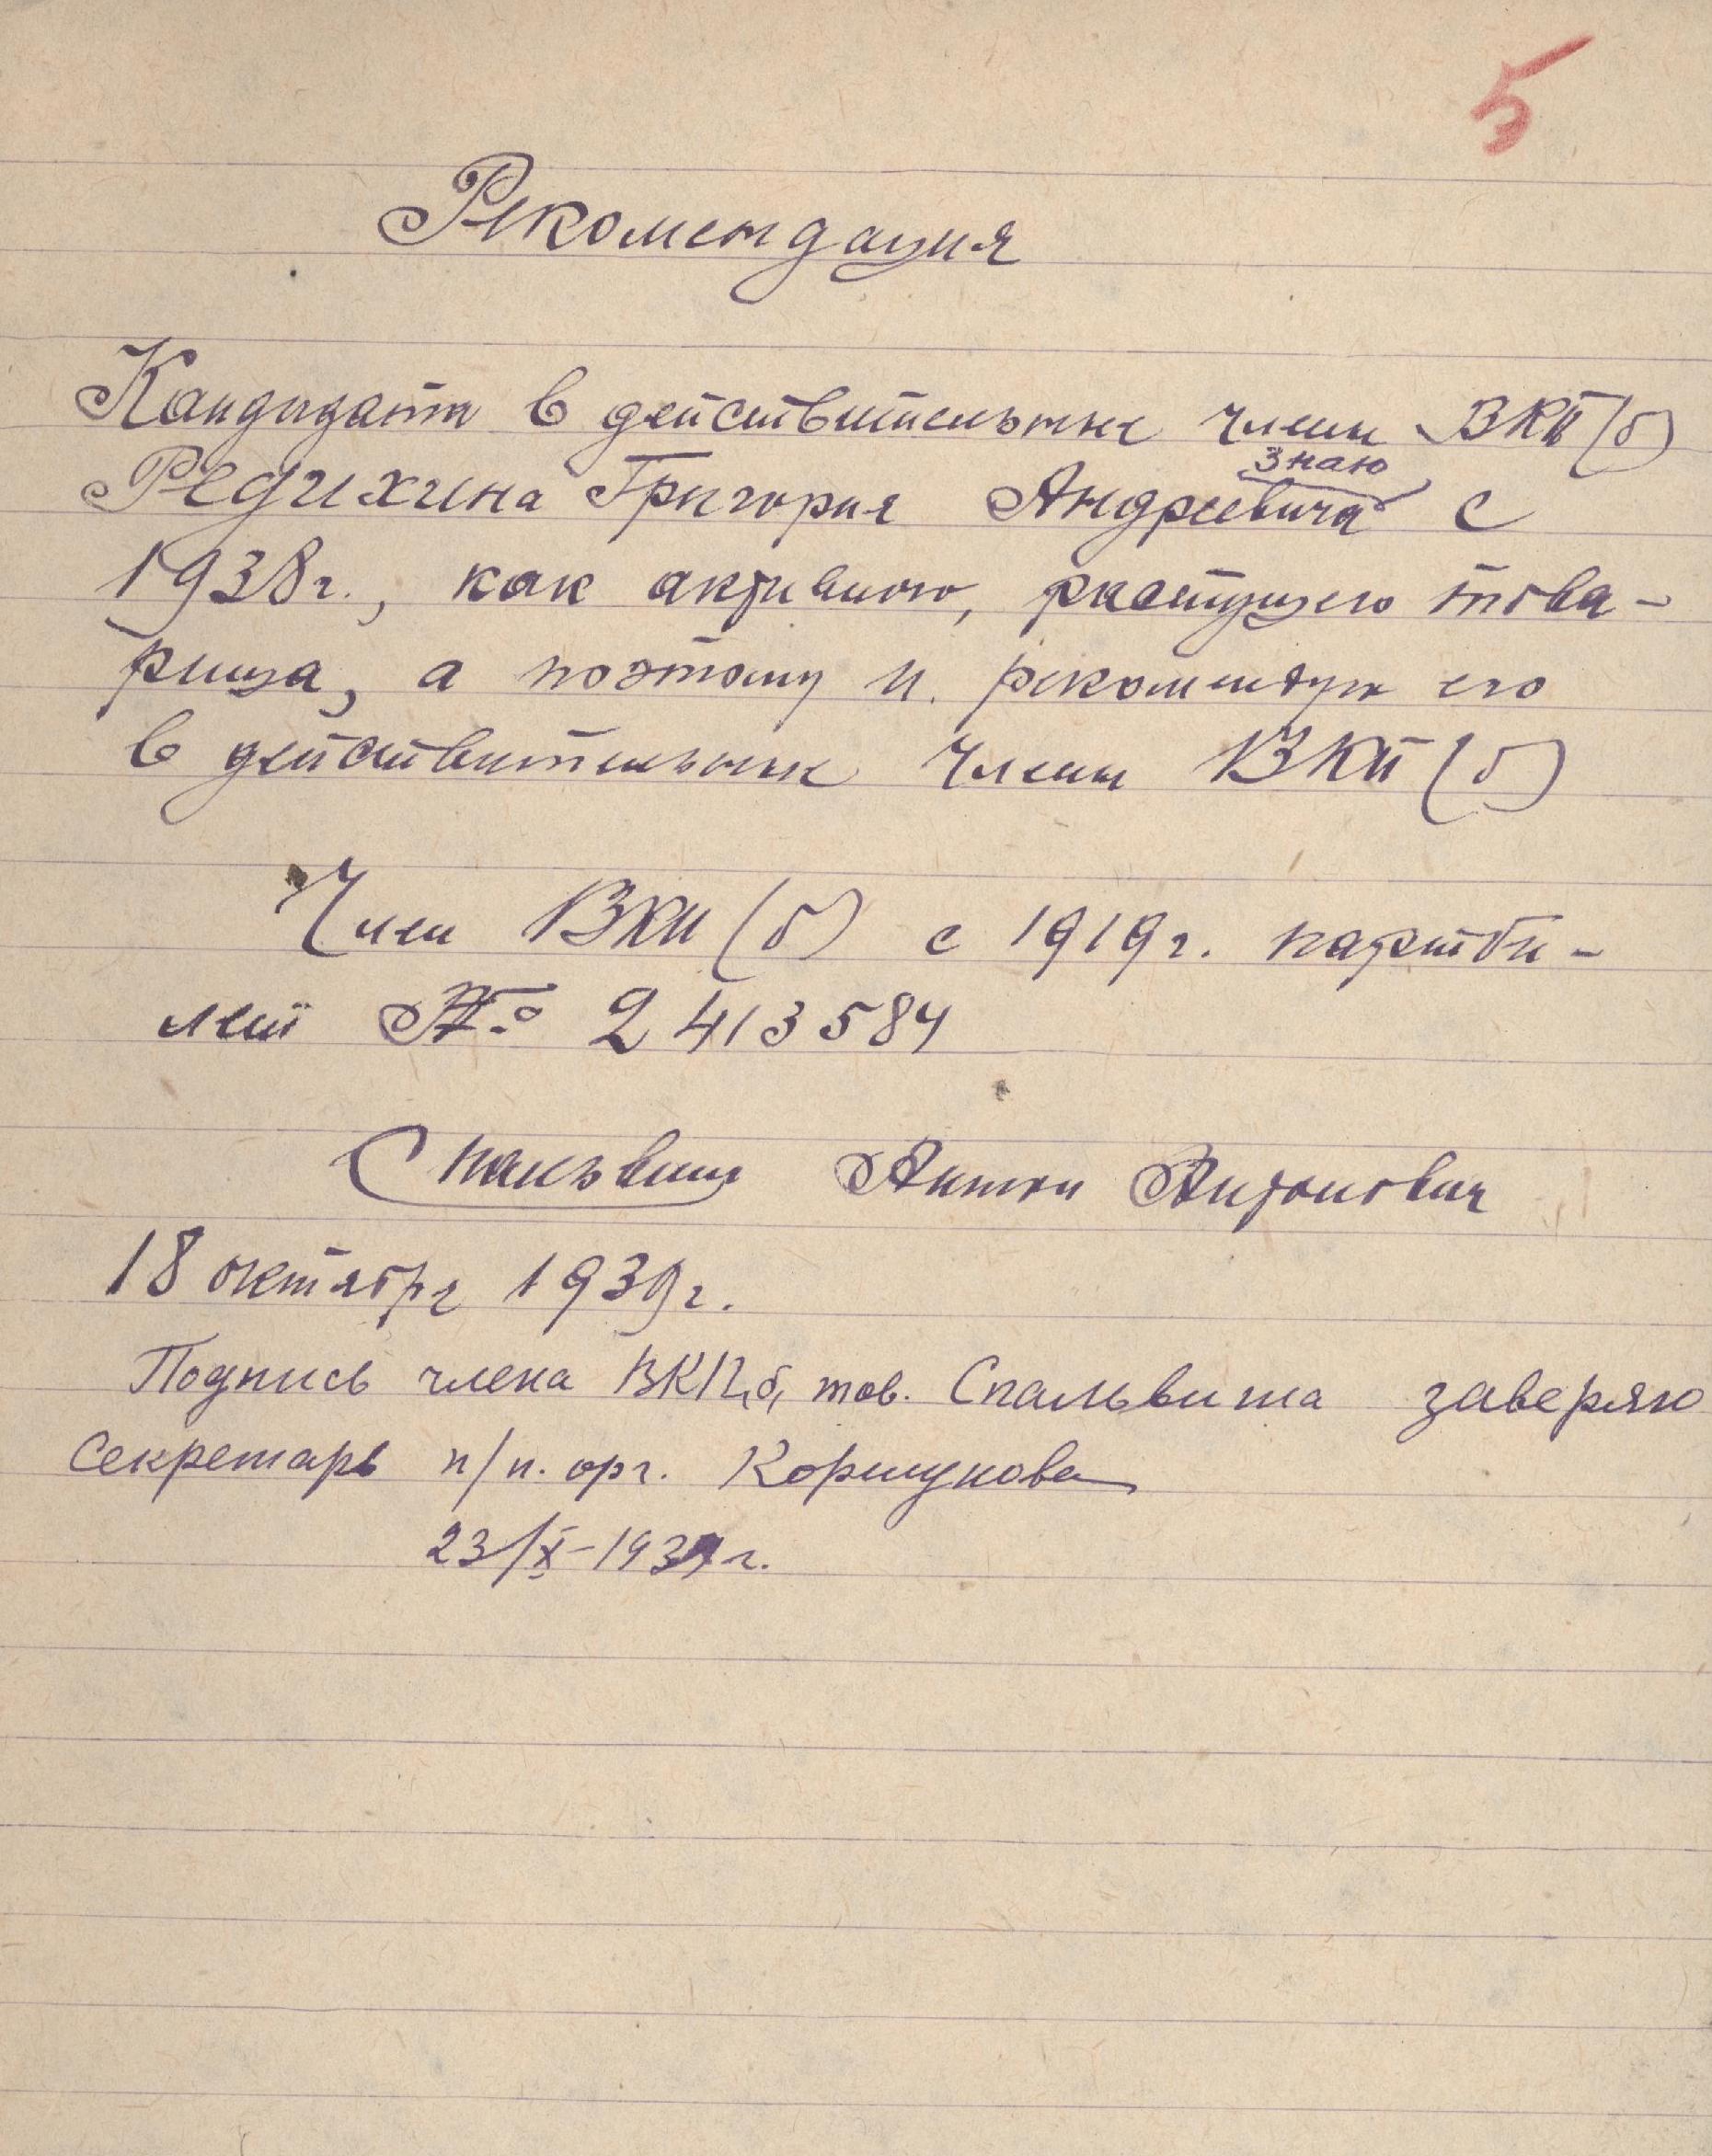 5
Рекомендация
Кандидата в действительные члены ВКП(б)
знаю
Редихина Григория Андреевича с
1938г., как активного, растущего това-
рища, а поэтому и рекомендую его
в действительные члены ВКП(б)
Член ВКП(б) с 1919г. партби-
лет № 2413584
Спальвин Антон Антонович
18 октября 1939г.
Подпись члена ВКП,б, тов. Спальвина заверяю
Секретарь п/п. орг. Коршунова
23/X-1939г.